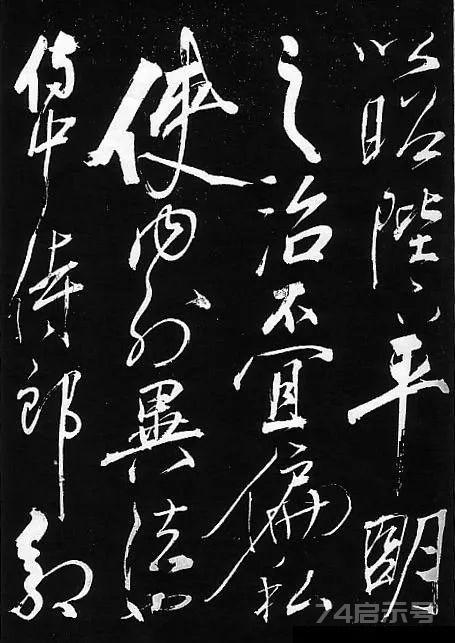 以昭陛下平明
之治不宜偏私
使内外異法也
侍中侍郎郭
74启示号